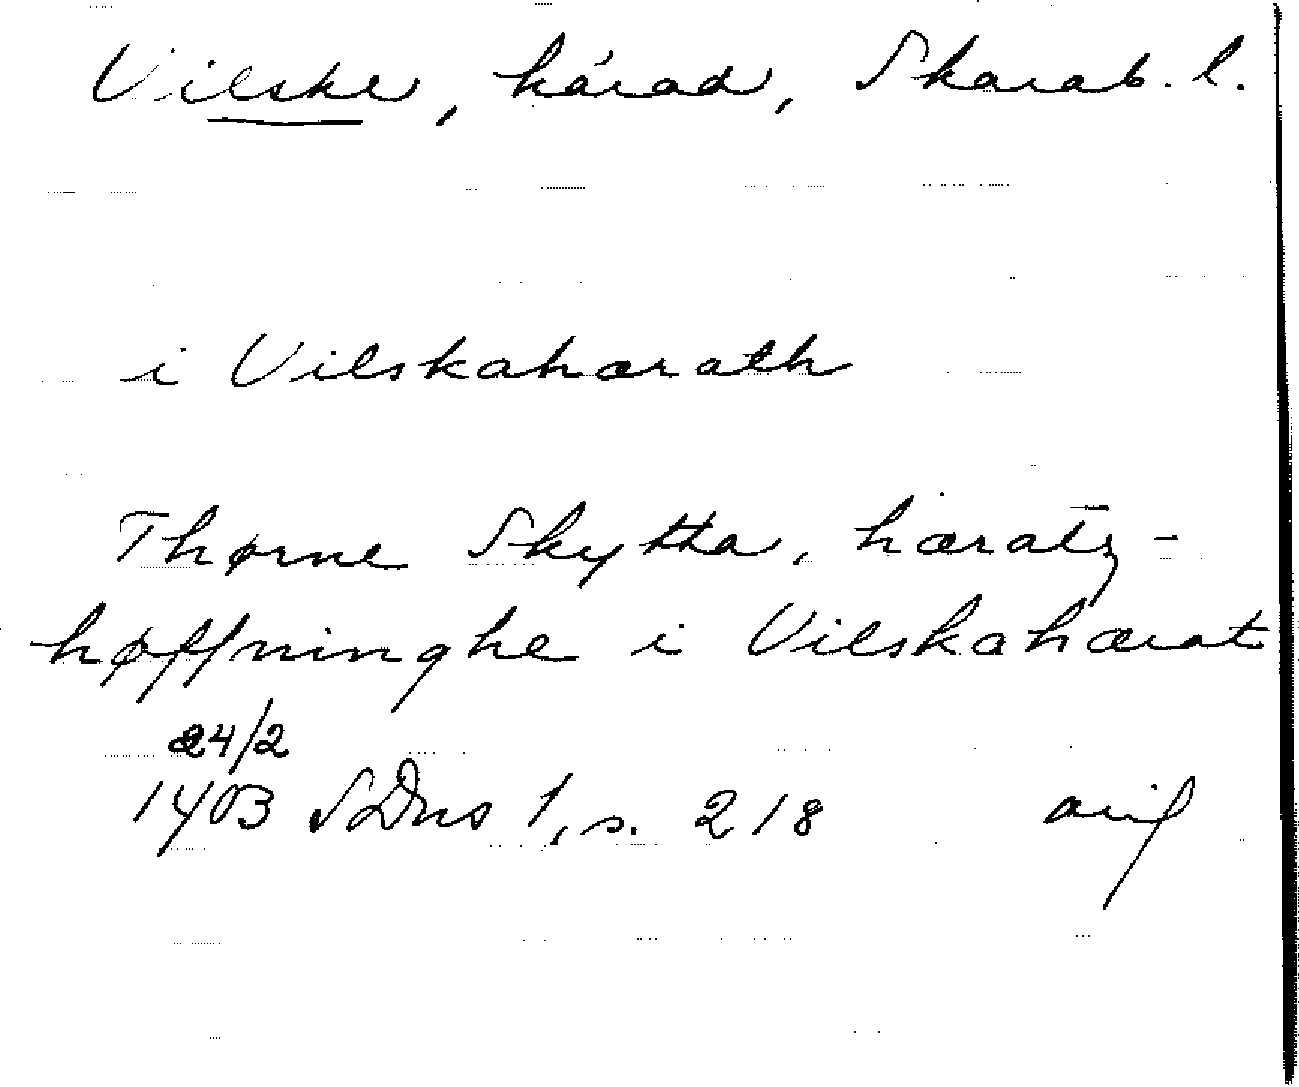 Vilske, härad, Skarab. l.
i Vilskahærath
Thørne Skytta, hæratz-
høffninghe i Vilskahærat
24/2
1403 SDns 1, s. 218 orig